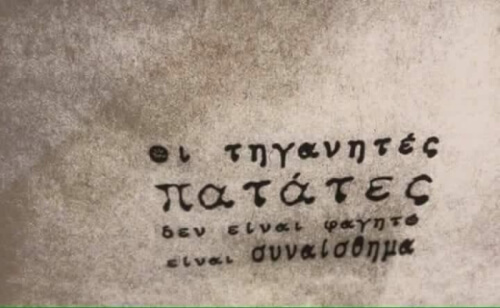 Οι τηγανητές
πατάτες
δεν είναι φαγητό
είναι συναίσθημα